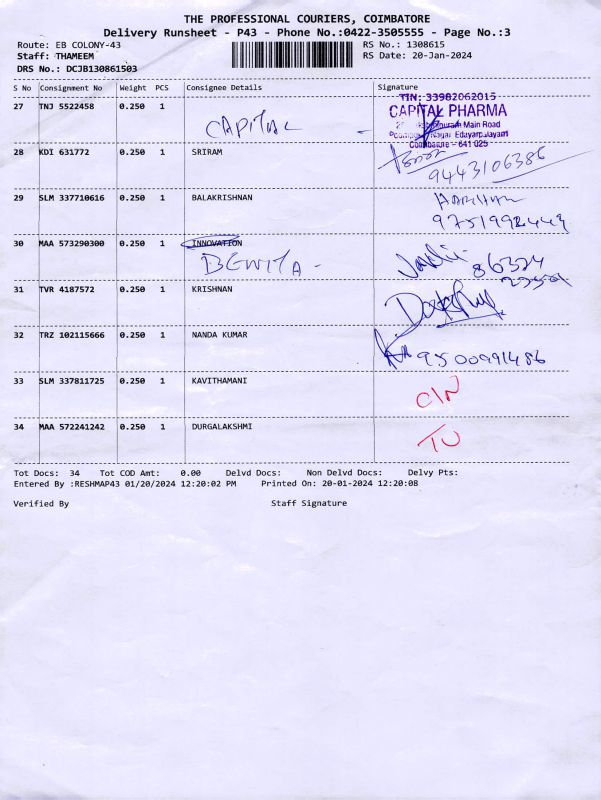 THE PROFESSIONAL COURIERS, COIMBATORE
Delivery Runsheet - P43 - Phone No.:0422-3505555 - Page No.:3
Route: EB COLONY-43 RS No.: 1308615
Staff: THAMEEM RS Date: 20-Jan-2024
DRS No.: DCJB130861503
S No Consignment No Weight PCS Consignee Details Signature
27 TNJ 5522458 0.250 1
CAPITAL
TIN: 33982062015
CAPITAL PHARMA
Main Road
Nagar Edayarpalayam
Coimbatore - 641 025
28 KDI 631772 0.250 1 SRIRAM
9443106386
29 SLM 337710616 0.250 1 BALAKRISHNAN
9751992449
30 MAA 573290300 0.250 1 INNOVATION
86324
31 TVR 4187572 0.250 1 KRISHNAN
32 TRZ 102115666 0.250 1 NANDA KUMAR
9500991486
33 SLM 337811725 0.250 1 KAVITHAMANI
C/N
34 MAA 572241242 0.250 1 DURGALAKSHMI
TU
Tot Docs: 34 Tot COD Amt: 0.00 Delvd Docs: Non Delvd Docs: Delvy Pts:
Entered By :RESHMAP43 01/20/2024 12:20:02 PM Printed On: 20-01-2024 12:20:08
Verified By Staff Signature